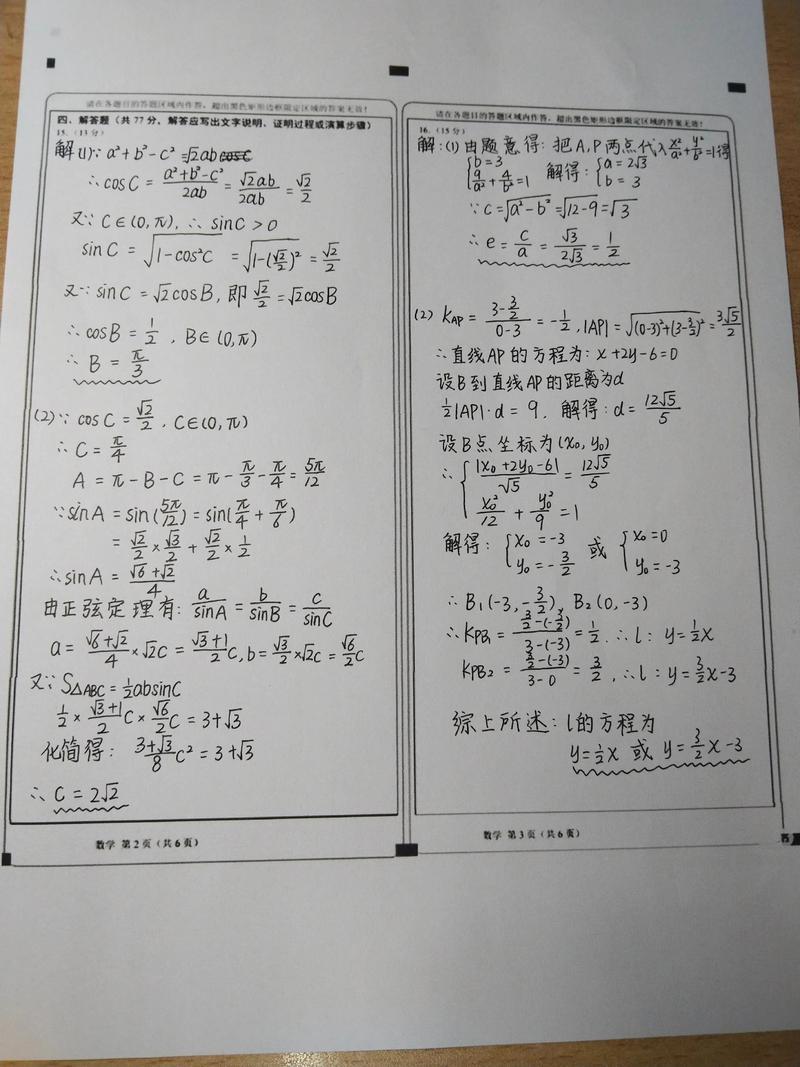 请在各题目的答题区域内作答，超出黑色矩形边框限定区域的答案无效！
四、解答题（共 77 分，解答应写出文字说明、证明过程或演算步骤）
15.（13分）
解(1)∵ a²+b²-c²=√2ab
∴cosC = (a²+b²-c²)/2ab = √2ab/2ab = √2/2
又∵ C∈(0,π), ∴ sinC > 0
sinC = √(1-cos²C) = √(1-(√2/2)²) = √2/2
又∵ sinC = √2cosB, 即 √2/2 = √2cosB
∴cosB = 1/2 , B∈(0,π)
∴ B = π/3
(2)∵ cosC = √2/2 , C∈(0,π)
∴ C = π/4
A = π - B - C = π - π/3 - π/4 = 5π/12
∵sinA = sin(5π/12) = sin(π/4 + π/6)
= √2/2 × √3/2 + √2/2 × 1/2
∴sinA = (√6+√2)/4
由正弦定理有: a/sinA = b/sinB = c/sinC
a = (√6+√2)/4 × √2c = (√3+1)/2 c, b = √3/2 × √2c = √6/2 c
又∵ S△ABC = 1/2 absinC
1/2 × (√3+1)/2 c × √6/2 c = 3+√3
化简得: (3+√3)/8 c² = 3+√3
∴ C = 2√2
数学 第 2 页（共 6 页）
请在各题目的答题区域内作答，超出黑色矩形边框限定区域的答案无效！
16.（15分）
解:(1)由题意得: 把A,P两点代入x²/a²+y²/b²=1得
{b=3 9/a²+4/b²=1 解得: {a=2√3 b=3
∵ c=√(a²-b²)=√(12-9)=√3
∴ e = c/a = √3/2√3 = 1/2
(2) KAP = (3-3/2)/(0-3) = -1/2 , |AP| = √((0-3)²+(3-3/2)²) = 3√5/2
∴直线AP的方程为: x+2y-6=0
设B到直线AP的距离为d
1/2|AP|·d = 9 . 解得: d = 12√5/5
设B点坐标为(x₀, y₀)
∴ {|x₀+2y₀-6|/√5 = 12√5/5
x₀²/12 + y₀²/9 = 1
解得: {x₀=-3 y₀=-3/2 或 {x₀=0 y₀=-3
∴ B₁(-3,-3/2), B₂(0,-3)
∴KPB₁ = (3/2-(-3/2))/(3-(-3)) = 1/2 . ∴l: y=1/2x
KPB₂ = (3/2-(-3))/(3-0) = 3/2 , ∴l: y=3/2x-3
综上所述: l的方程为
y=1/2x 或 y=3/2x-3
数学 第 3 页（共 6 页）